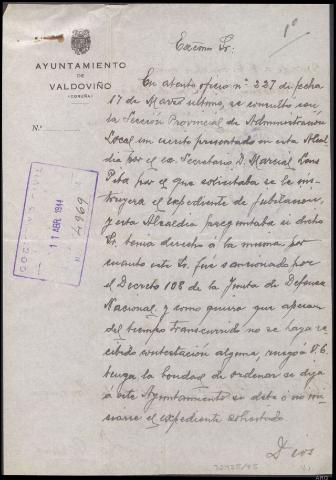 1º
AYUNTAMIENTO
DE
VALDOVIÑO
(CORUÑA)
Nº
Excmo Sr:
En atento oficio nº 227 de fecha
17 de Marzo ultimo, se consultó con
la Sección Provincial de Administración
Local un escrito presentado en esta Alcal
dia por el ex. Secretario D. Marcial
Pita por el que solicitaba se le ins
truyera el expediente de jubilación,
y esta Alcaldia preguntaba si dicho
Sr. tenia derecho á la misma, por
cuanto este Sr. fué sancionado por
el Decreto 108 de la Junta de Defensa
Nacional, y como quiera que apesar
del tiempo transcurrido no se haya re
cibido contestación alguna, ruego á V.E.
tenga la bondad de ordenar se diga
á este Ayuntamiento si debe ó no ini
ciarse el expediente solicitado
Dios
GOBIERNO CIVIL
11 ABR. 1944
N. 4969